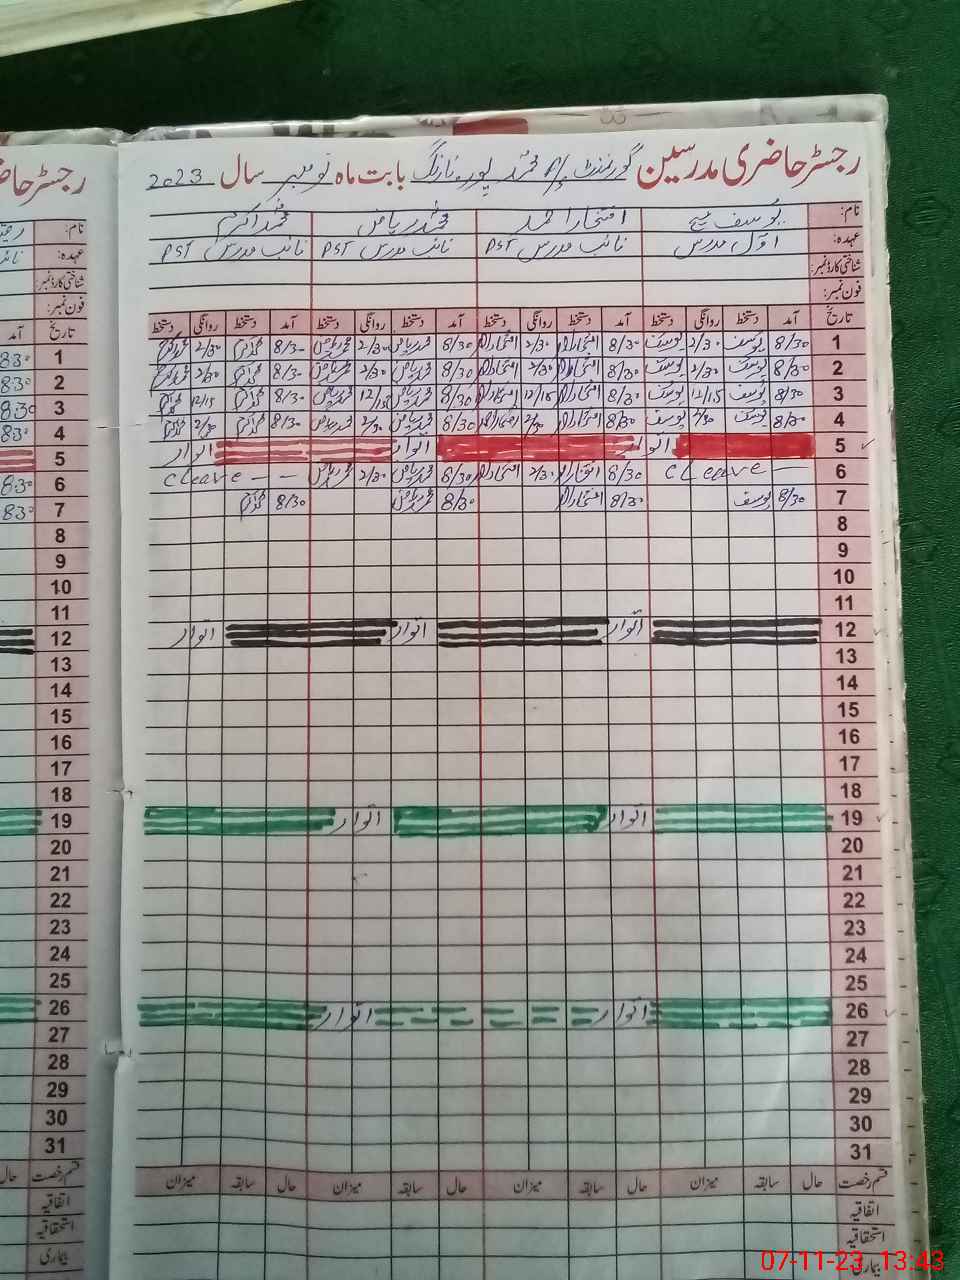 رجسٹر حاضری مدرسین گورنمنٹ P/S محمد پورہ نارنگ بابت ماہ نومبر سال 2023
نام: یوسف مسیح افتخار احمد محمد ریاض محمد اکرم
عہدہ: اول مدرس نائب مدرس PST نائب مدرس PST نائب مدرس PST
شناختی کارڈ نمبر:
فون نمبر:
تاریخ آمد دستخط روانگی دستخط آمد دستخط روانگی دستخط آمد دستخط روانگی دستخط آمد دستخط روانگی دستخط
1 8/30 یوسف 2/30 یوسف 8/30 افتخار احمد 2/30 افتخار احمد 8/30 محمد ریاض 2/30 محمد ریاض 8/30 محمد اکرم 2/30 محمد اکرم
2 8/30 یوسف 2/30 یوسف 8/30 افتخار احمد 2/30 افتخار احمد 8/30 محمد ریاض 2/30 محمد ریاض 8/30 محمد اکرم 2/30 محمد اکرم
3 8/30 یوسف 12/15 یوسف 8/30 افتخار احمد 12/15 افتخار احمد 8/30 محمد ریاض 12/15 محمد ریاض 8/30 محمد اکرم 12/15 محمد اکرم
4 8/30 یوسف 2/30 یوسف 8/30 افتخار احمد 2/30 افتخار احمد 8/30 محمد ریاض 2/30 محمد ریاض 8/30 محمد اکرم 2/30 محمد اکرم
5 اتوار اتوار اتوار
6 C Leave 8/30 افتخار احمد 2/30 افتخار احمد 8/30 محمد ریاض 2/30 محمد ریاض C Leave
7 8/30 یوسف 8/30 افتخار احمد 8/30 محمد ریاض 8/30 محمد اکرم
8
9
10
11
12 اتوار اتوار اتوار
13
14
15
16
17
18
19 اتوار اتوار
20
21
22
23
24
25
26 اتوار اتوار
27
28
29
30
31
قسم رخصت حال سابقہ میزان حال سابقہ میزان حال سابقہ میزان حال سابقہ میزان
اتفاقیہ
استحقاقیہ
بیماری
رجسٹر حاض
نام:
عہدہ:
شناختی کارڈ نمبر:
فون نمبر:
تاریخ آمد
1 830
2 830
3 830
4 830
5
6 830
7 830
8
9
10
11
12
13
14
15
16
17
18
19
20
21
22
23
24
25
26
27
28
29
30
31
قسم رخصت حال
اتفاقیہ
استحقاقیہ
بیماری
07-11-23 13:43